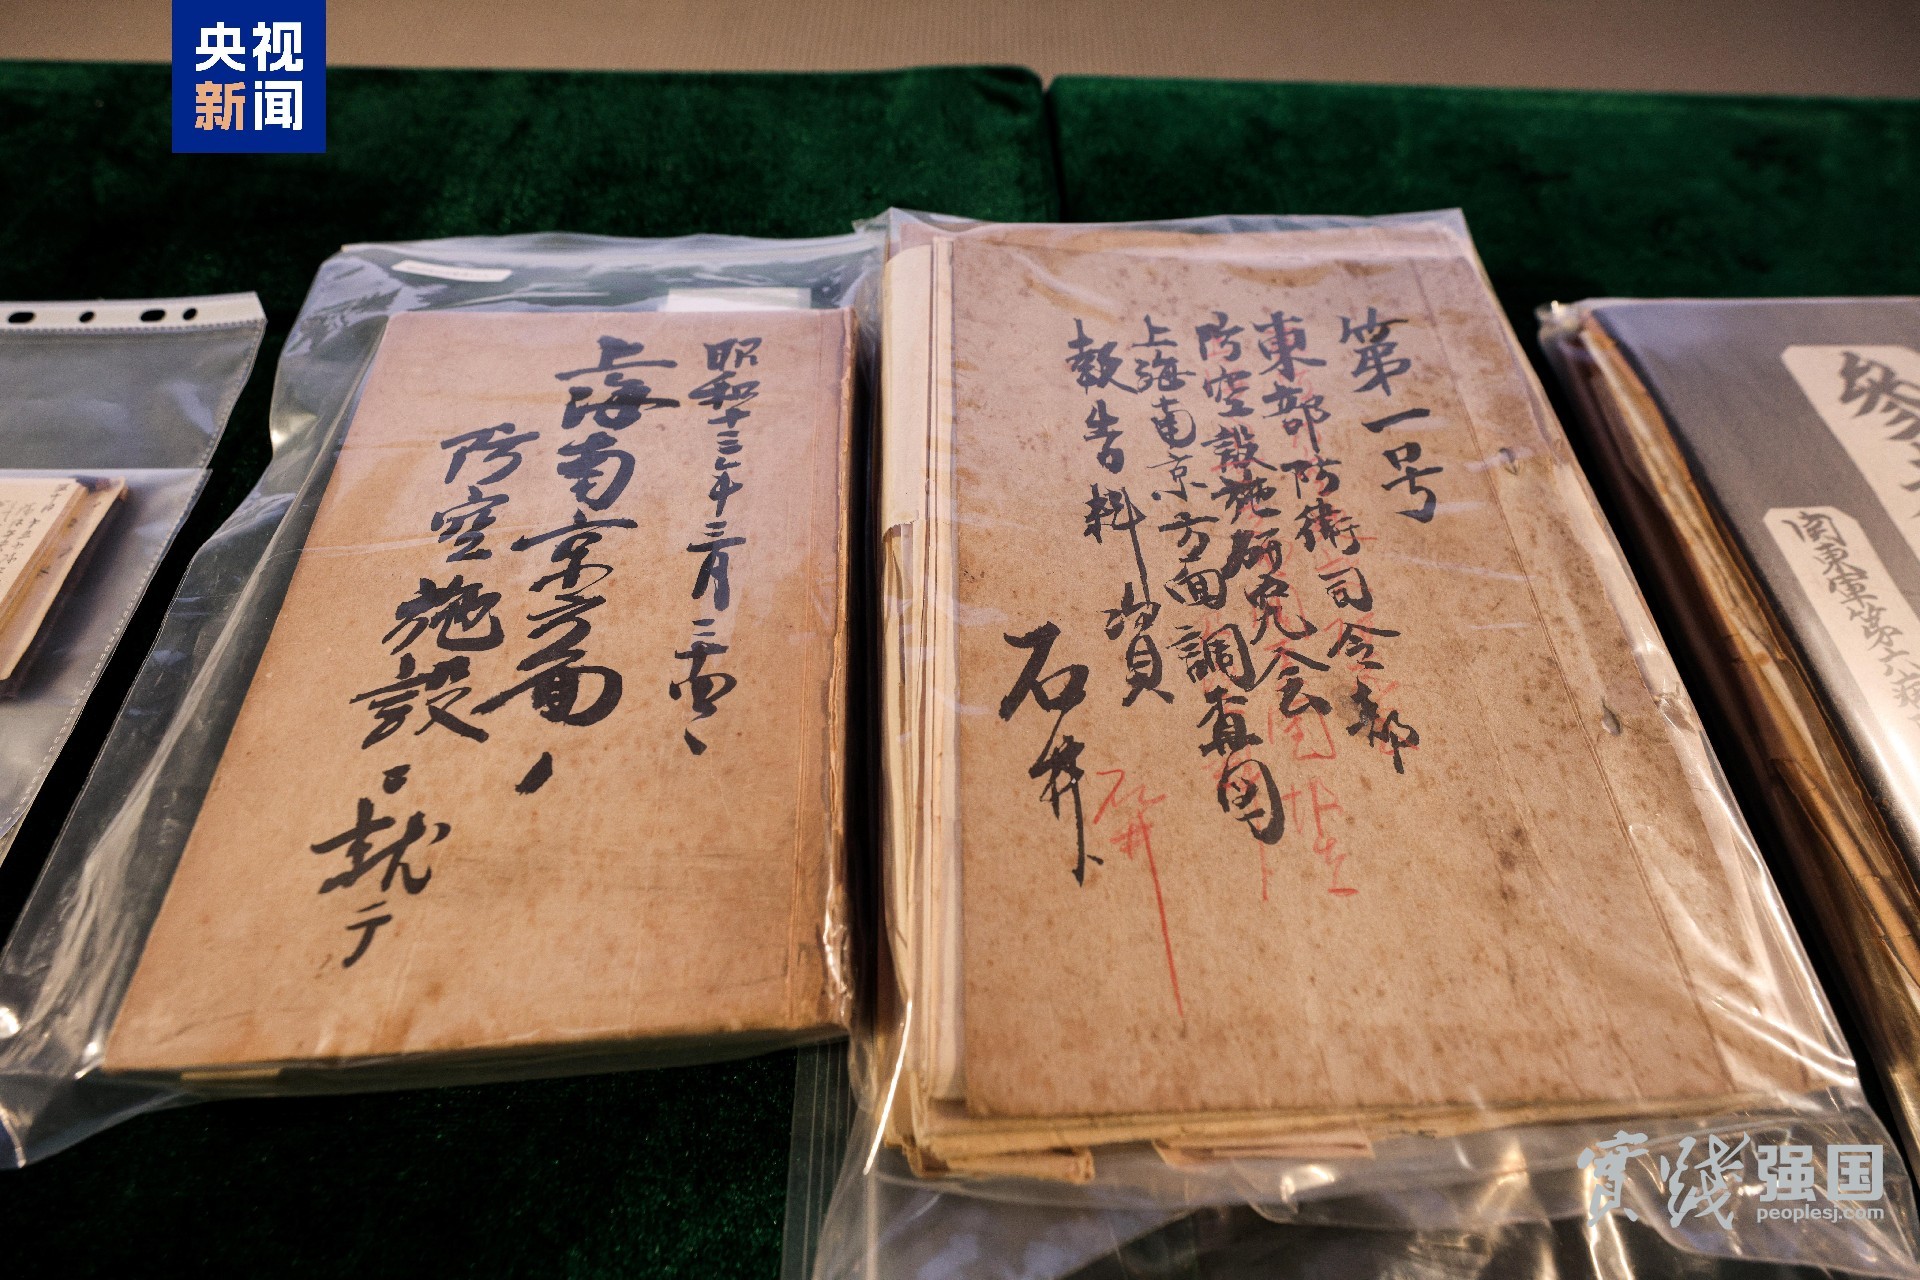 央视
新闻
昭和十三年三月二十四日
上海南京方面ノ
防空施設ニ就テ
第一号
東部防衛司令部
防空設施研究会
上海南京方面調査団
報告料資
石井
石井
参考
関東軍第六病
實践强国
peoplesj.com